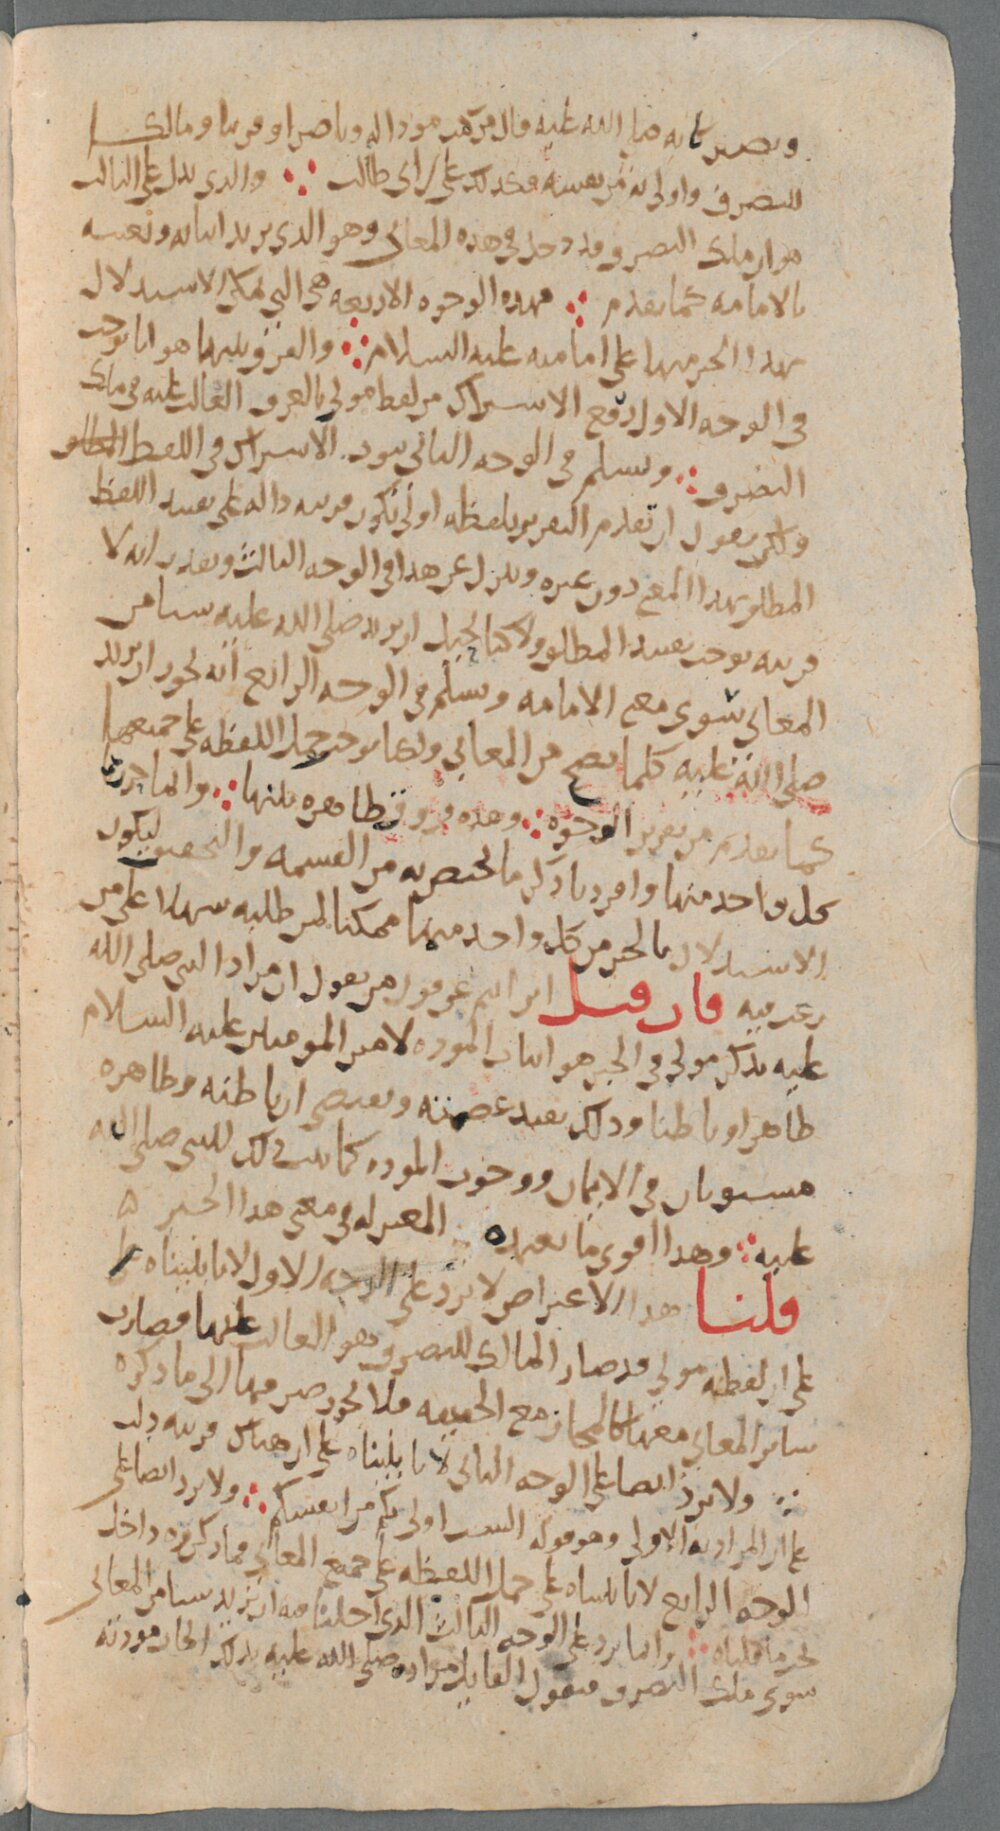 ويصير كانه صلى الله عليه قال من كنت موداله وناصرا وقريبا ومالكا
للتصرف واولى به من نفسه فكذلك علي بن ابي طالب ∴ والذي يدل على الثالث
هو ان ملك التصرف قد دخل في هذه المعاني وهو الذي يريد اثباته ونعنيه
بالامامه كما تقدم ∴ فهذه الوجوه الاربعه هي التي يمكن الاستدلال
بهذا الخبر منها على امامته عليه السلام ∴ والفرق بينها هو انا نوجب
في الوجه الاول رفع الاشتراك من لفظ مولى بالعرف الغالب عليه في ملك
التصرف ∴ ونسلم في الوجه الثاني ثبوت الاشتراك في اللفظ المطلق
ولكن نقول ان تقدم التقرير بلفظه اولى تكون قرينه داله على تقييد اللفظ
المطلق بهذا المعنى دون غيره وننزل عن هذا في الوجه الثالث ونقدر انه لا
قرينه توجب تقييد المطلق ولا كنا نحيل ان يريد صلى الله عليه شيا من
المعاني سوى معنى الامامه ونسلم في الوجه الرابع انه يجوز ان يريد
صلى الله عليه كلما يصح من المعاني ولكنا نوجب حمل اللفظه على جميعها
كما تقدم من تقرير الوجوه ∴ وهذه فروق ظاهره بينها ∴ وانما حررنا
كل واحد منها وافردنا ذكر ما يختص به من القسمه والتحقيق ليكون
الاستدلال بالخبر من كل واحد منها ممكنا لمن طلبه سهلا على من
رغب فيه فان قيل اين انتم عن قول من يقول ان مراد النبي صلى الله
عليه بذكر مولى في الخبر هو اثبات الموده لامير المومنين عليه السلام
ظاهرا وباطنا وذلك يفيد عصمته ويقتضي ان باطنه وظاهره
مستويان في الايمان ووجوب الموده كما ثبت ذلك للنبي صلى الله
عليه ∴ وهذا اقوى ما تعتمده المعتزله في معنى هذا الخبر ه
قلنا هذا الاعتراض لا يرد على الوجه الاول لانا بنيناه
على ان لفظه مولى قد صار المالك للتصرف هو الغالب عليها فصارت
ساير المعاني معها كالمجاز مع الحقيقه فلا يجوز صرفها الى ما ذكره
∴ ولا يرد ايضا على الوجه الثاني لانا بنيناه على ان هناك قرينه دلت
على ان المراد به الاولى وهو قوله الست اولى بكم من انفسكم ∴ ولا يرد ايضا على
الوجه الرابع لانا بنيناه على حمل اللفظه على جميع المعاني فما ذكروه داخل
تحت ما قلناه ∴ وانما يرد على الوجه الثالث الذي احلنا فيه ان يريد شيا من المعاني
سوى ملك التصرف فيقول القايل مراده صلى الله عليه بذلك ايجاب مودته